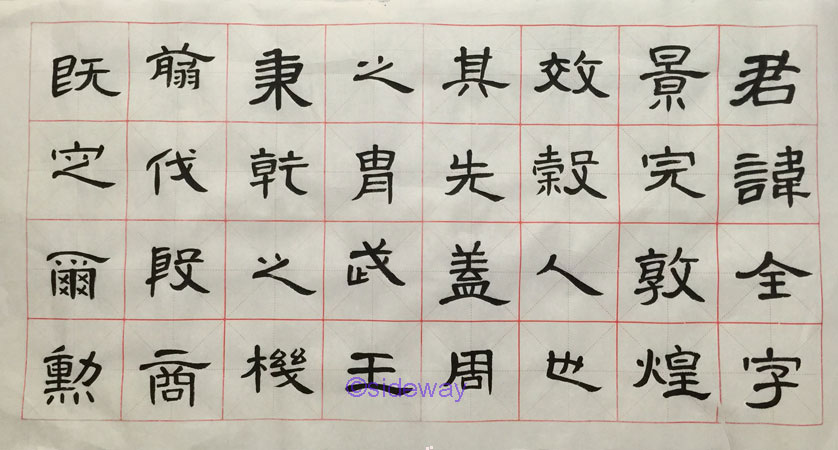 君諱全字
景完敦煌
效穀人也
其先盖周
之胄武王
秉乾之機
翦伐殷商
既定爾勳
©sideway